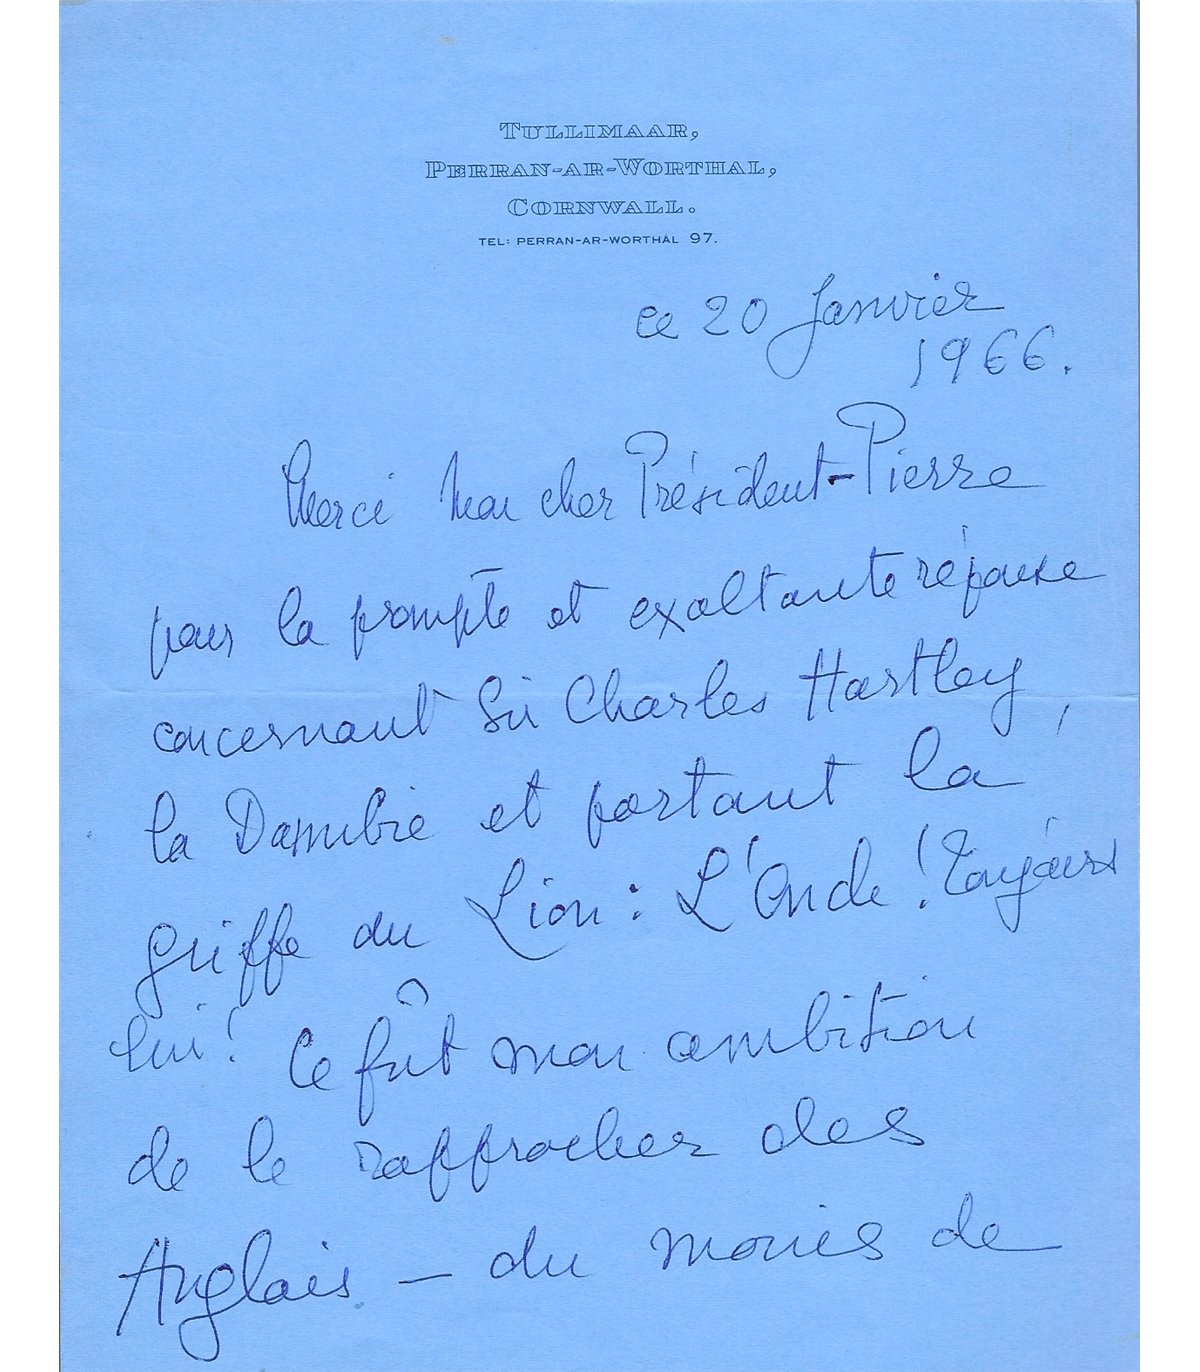 TULLIMAAR,
PERRAN-AR-WORTHAL,
CORNWALL.
TEL: PERRAN-AR-WORTHAL 97.
ce 20 Janvier
1966.
Merci Mon cher Président-Pierre
pour la prompte et exaltante réponse
concernant Sir Charles Hartley,
la Danubie et portant la
griffe du Lion: L'Onde! Toujours
lui! Ce fût mon ambition
de le rapprocher des
Anglais — du moins de